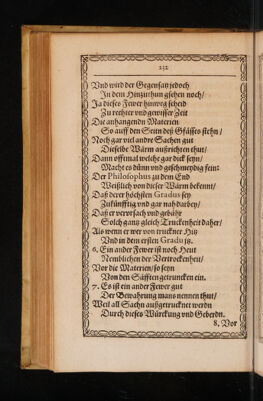 232
Und wird der Gegensatz jedoch
In dem Hinzuthun gsehen noch/
Ja dieses Fewer hinweg scheid
Zu rechter und gewisser Zeit
Die anhangenden Materien
So auff den Seitn deß Gfässes stehn/
Noch gar viel andre Sachen gut
Dieselbe Wärm außrichten thut/
Dann offtmal welche gar dick seyn/
Macht es dünn und gschmeydig fein:
Der Philosophus zu dem End
Weißlich von dieser Wärm bekennt/
Daß derer höchsten Gradus sey
Zukünfftig und gar nah darbey/
Daß er vervrsach und gebühr
Solch gantz gleich Truckenheit daher/
Als wenn er wer von truckner Hitz
Und in dem ersten Gradu js.
6. Ein ander Fewer ist noch Heut
Nemblichen der Vertrockenheit/
Vor die Materien/ so seyn
Von den Säfften getruncken ein.
7. Es ist ein ander Fewer gut
Der Bewahrung mans nennen thut/
Weil all Sachn außgetrucknet werdn
Durch dieses Würckung und Geberdn.
8. Vor